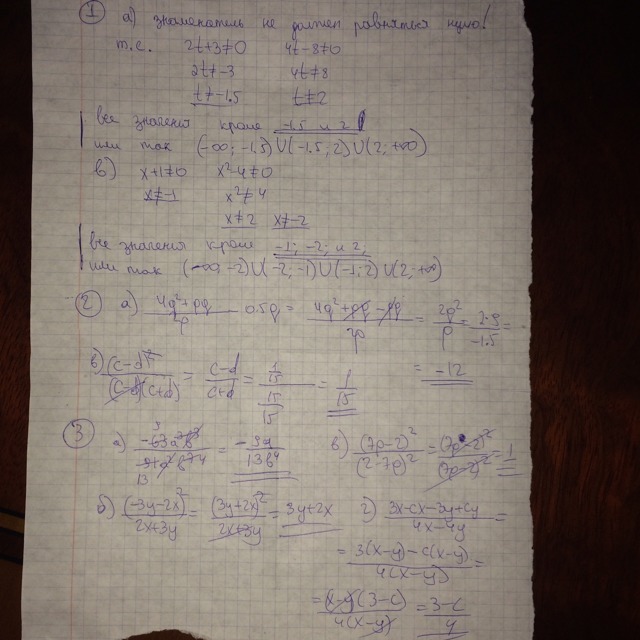 ① а) знаменатель не должен равняться нулю!
т.е. 2t+3≠0 4t-8≠0
2t≠-3 4t≠8
t≠-1,5 t≠2
все значения кроме -1,5 и 2
или так (-∞; -1,5)∪(-1,5; 2)∪(2; +∞)
в) x+1≠0 x²-4≠0
x≠-1 x²≠4
x≠2 x≠-2
все значения кроме -1; -2; и 2
или так (-∞; -2)∪(-2; -1)∪(-1; 2)∪(2; +∞)
② а)
= -12
в) = (c-d)/(c+d) = = 1/15
③ а) = -3a/13b⁴ в) (7p-2)²/(2-7p)² = (7p-2)²/(7p-2)² = 1
б) (-3y-2x)²/(2x+3y) = (3y+2x)²/(2x+3y) = 3y+2x г) (3x-cx-3y+cy)/(4x-4y) =
= (3(x-y)-c(x-y))/(4(x-y)) =
= (x-y)(3-c)/(4(x-y)) = (3-c)/4